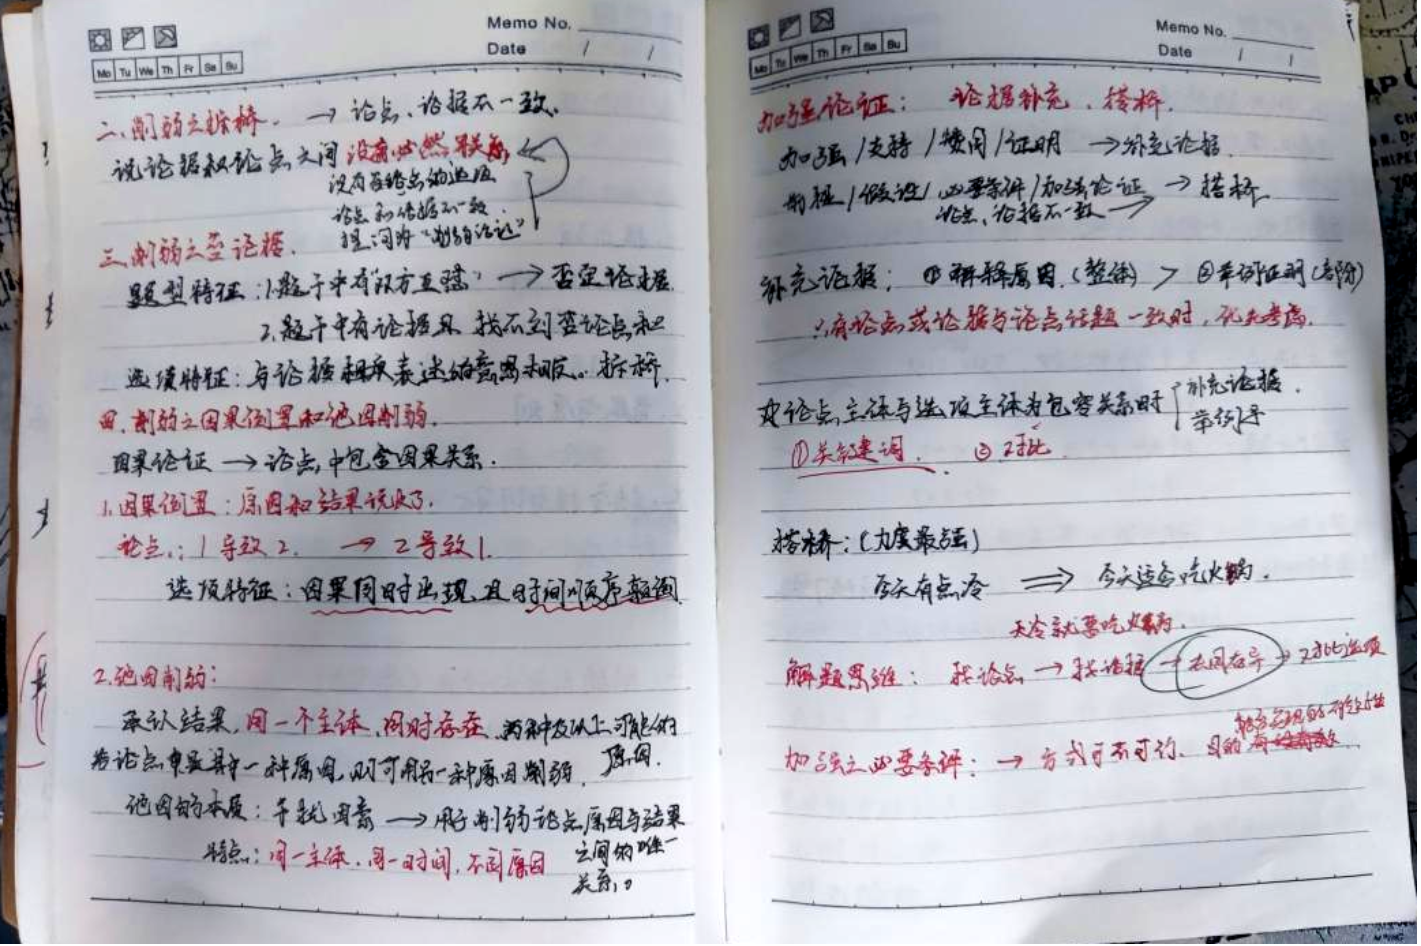 Memo No.
Date / /
Mo Tu We Th Fr Sa Su
二、削弱之拆桥. → 论点、论据不一致.
说论据和论点之间没有必然联系
没有在论点的选项
论点和论据不一致.
提问为“削弱论证”
三、削弱之否论据.
题型特征:1.题干中有双方互怼 → 否定论据.
2.题干中有论据且找不到否论点和
选项特征:与论据相反表述的意思相反。拆桥.
四、削弱之因果倒置和他因削弱.
因果论证 → 论点中包含因果关系.
1.因果倒置:原因和结果说反了.
论点:1导致2. → 2导致1.
选项特征:因果同时出现,且时间顺序颠倒
2.他因削弱:
承认结果,同一个主体,同时存在 两种及以上可能的原因.
若论点中是其中一种原因,则可用另一种原因削弱.
他因的本质:干扰因素 → 用于削弱论点原因与结果之间的唯一关系。
特点:同一主体,同一时间,不同原因
Memo No.
Date / /
Mo Tu We Th Fr Sa Su
加强论证: 论据补充、搭桥.
加强/支持/赞同/证明 → 补充论据
前提/假设/必要条件/加强论证 → 搭桥
论点、论据不一致 →
补充论据: ①解释原因.(整体) > ②举例证明(部分)
有论点或论据与论点话题一致时,优先考虑.
论点主体与选项主体为包容关系时 补充论据.
举例子
①关键词. ②对比
搭桥:(力度最强)
今天有点冷 ⇒ 今天适合吃火锅.
天冷就要吃火锅.
解题思维: 找论点 → 找论据 → 去同存异 → 对比选项
加强之必要条件: → 方式可不可行、目的